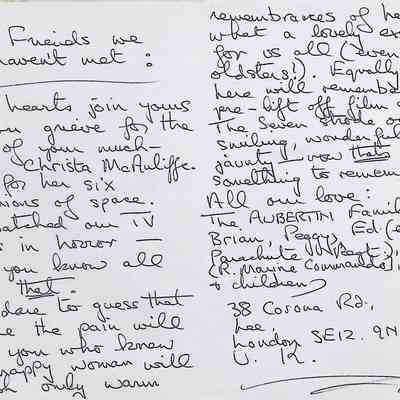 Friends we
haven't met :
hearts join yours
grieve for the
of your much-
Christa McAuliffe.
for her six
of space.
watched our TV
s in horror —
you know all
that.
dare to guess that
the pain will
you who knew
happy woman will
only warm
remembrances of he
what a lovely ex
for us all (even
oldsters!). Equally
here will rememb
pre-lift off film
The seven strode o
smiling, wonderful
jaunty — now that's
something to remem
All our love :
The AUBERTIN Famil
Brian, Peggy, Ed. (
Parachute Regt.),
(R. Marine Commando),
+ children)
38 Corona Rd.,
Lee,
London SE12. 9N
U. K.